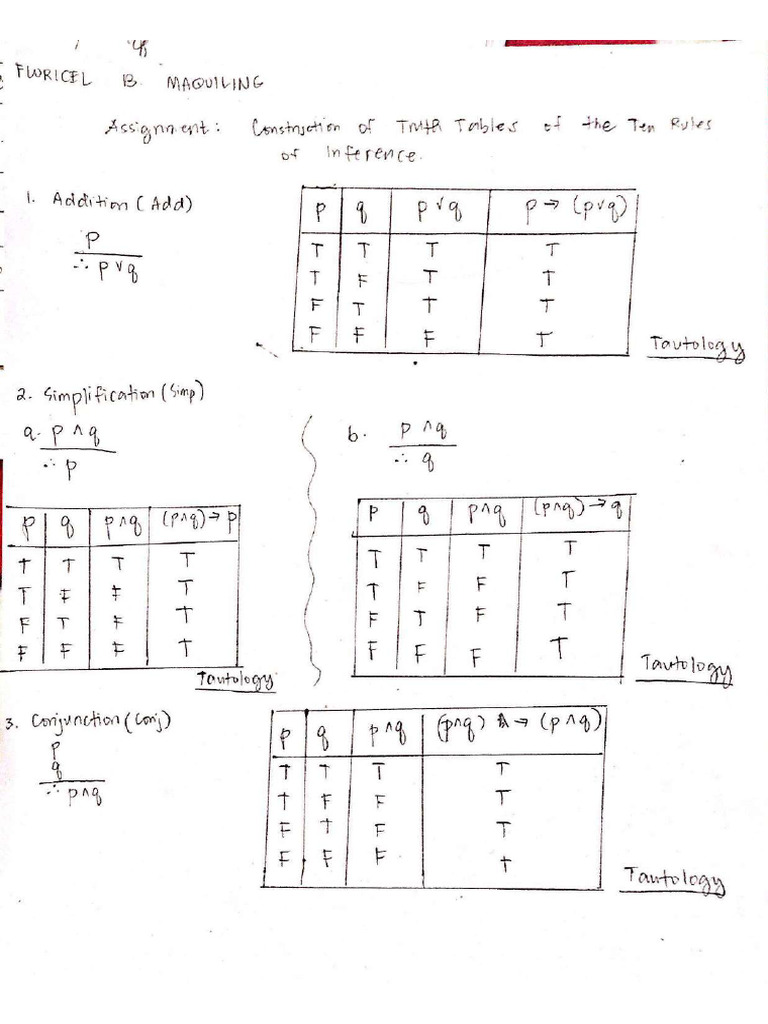 FLORICEL B. MAQUILING
Assignment: Construction of Truth Tables of the Ten Rules
of Inference.
1. Addition (Add)
p
∴ p ∨ q
p q p ∨ q p → (p ∨ q)
T T T T
T F T T
F T T T
F F F T
Tautology
2. Simplification (Simp)
a. p ∧ q
∴ p
p q p ∧ q (p ∧ q) → p
T T T T
T F F T
F T F T
F F F T
Tautology
b. p ∧ q
∴ q
p q p ∧ q (p ∧ q) → q
T T T T
T F F T
F T F T
F F F T
Tautology
3. Conjunction (Conj)
p
q
∴ p ∧ q
p q p ∧ q (p ∧ q) → (p ∧ q)
T T T T
T F F T
F T F T
F F F T
Tautology